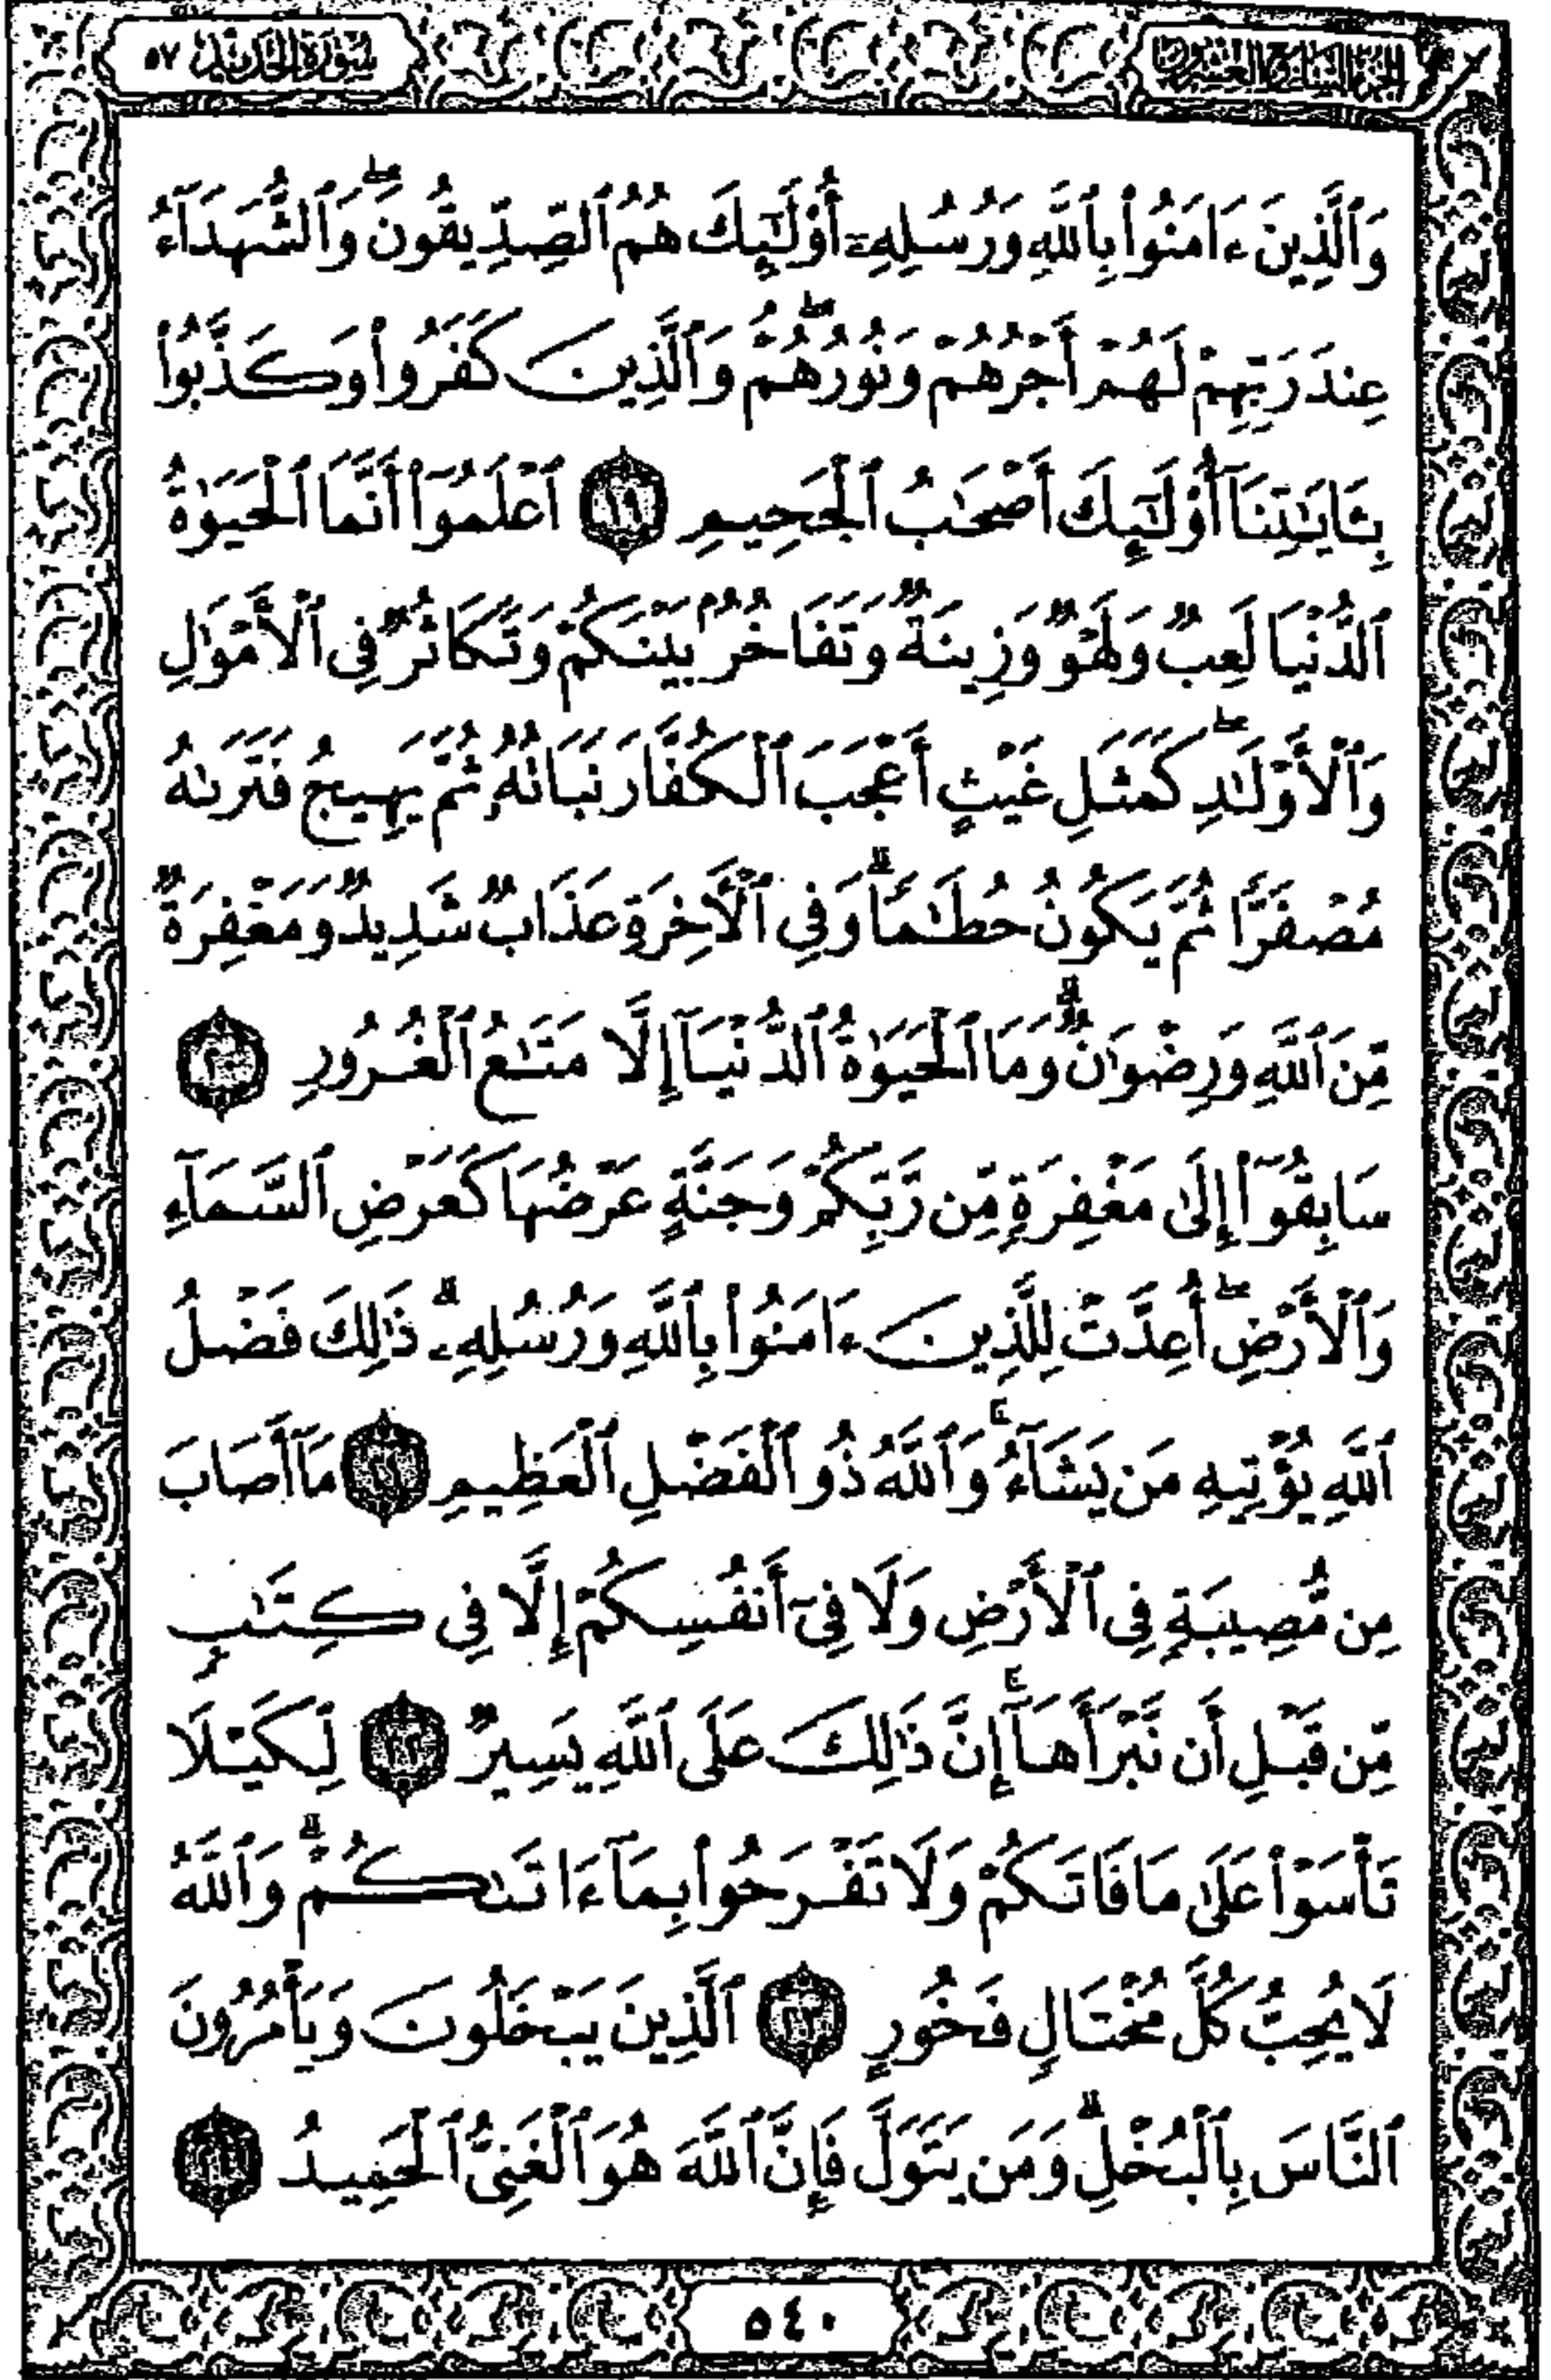 الجزء السابع والعشرون
سورة الحديد ٥٧
وَٱلَّذِينَ ءَامَنُوا۟ بِٱللَّهِ وَرُسُلِهِۦٓ أُو۟لَـٰٓئِكَ هُمُ ٱلصِّدِّيقُونَ ۖ وَٱلشُّهَدَآءُ
عِندَ رَبِّهِمْ لَهُمْ أَجْرُهُمْ وَنُورُهُمْ ۖ وَٱلَّذِينَ كَفَرُوا۟ وَكَذَّبُوا۟
بِـَٔايَـٰتِنَآ أُو۟لَـٰٓئِكَ أَصْحَـٰبُ ٱلْجَحِيمِ ١٩ ٱعْلَمُوٓا۟ أَنَّمَا ٱلْحَيَوٰةُ
ٱلدُّنْيَا لَعِبٌ وَلَهْوٌ وَزِينَةٌ وَتَفَاخُرٌۢ بَيْنَكُمْ وَتَكَاثُرٌ فِى ٱلْأَمْوَٰلِ
وَٱلْأَوْلَـٰدِ ۖ كَمَثَلِ غَيْثٍ أَعْجَبَ ٱلْكُفَّارَ نَبَاتُهُۥ ثُمَّ يَهِيجُ فَتَرَىٰهُ
مُصْفَرًّا ثُمَّ يَكُونُ حُطَـٰمًا ۖ وَفِى ٱلْـَٔاخِرَةِ عَذَابٌ شَدِيدٌ وَمَغْفِرَةٌ
مِّنَ ٱللَّهِ وَرِضْوَٰنٌ ۚ وَمَا ٱلْحَيَوٰةُ ٱلدُّنْيَآ إِلَّا مَتَـٰعُ ٱلْغُرُورِ ٢٠
سَابِقُوٓا۟ إِلَىٰ مَغْفِرَةٍ مِّن رَّبِّكُمْ وَجَنَّةٍ عَرْضُهَا كَعَرْضِ ٱلسَّمَآءِ
وَٱلْأَرْضِ ۖ أُعِدَّتْ لِلَّذِينَ ءَامَنُوا۟ بِٱللَّهِ وَرُسُلِهِۦ ۚ ذَٰلِكَ فَضْلُ
ٱللَّهِ يُؤْتِيهِ مَن يَشَآءُ ۚ وَٱللَّهُ ذُو ٱلْفَضْلِ ٱلْعَظِيمِ ٢١ مَآ أَصَابَ
مِن مُّصِيبَةٍ فِى ٱلْأَرْضِ وَلَا فِىٓ أَنفُسِكُمْ إِلَّا فِى كِتَـٰبٍ
مِّن قَبْلِ أَن نَّبْرَأَهَآ ۚ إِنَّ ذَٰلِكَ عَلَى ٱللَّهِ يَسِيرٌ ٢٢ لِّكَيْلَا
تَأْسَوْا۟ عَلَىٰ مَا فَاتَكُمْ وَلَا تَفْرَحُوا۟ بِمَآ ءَاتَىٰكُمْ ۗ وَٱللَّهُ
لَا يُحِبُّ كُلَّ مُخْتَالٍ فَخُورٍ ٢٣ ٱلَّذِينَ يَبْخَلُونَ وَيَأْمُرُونَ
ٱلنَّاسَ بِٱلْبُخْلِ ۗ وَمَن يَتَوَلَّ فَإِنَّ ٱللَّهَ هُوَ ٱلْغَنِىُّ ٱلْحَمِيدُ ٢٤
٥٤٠